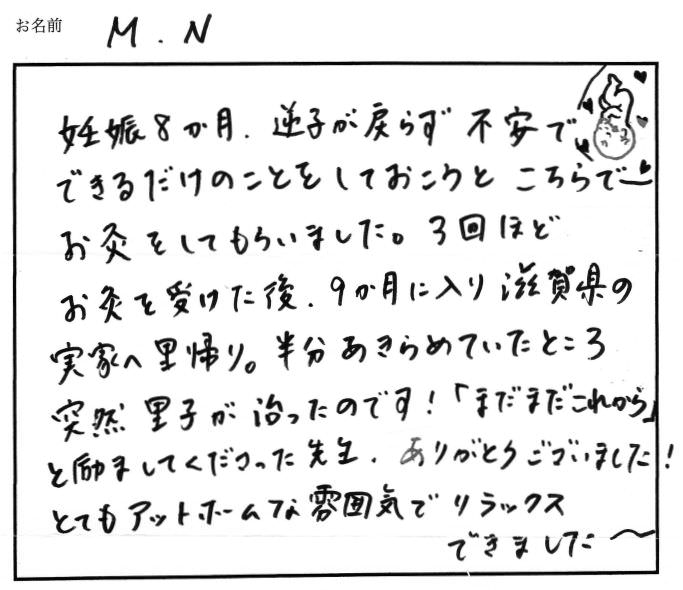 お名前 M.N
妊娠8か月.逆子が戻らず不安で
できるだけのことをしておこうと こちらで
お灸をしてもらいました。3回ほど
お灸を受けた後.9か月に入り滋賀県の
実家へ里帰り。半分あきらめていたところ
突然里子が治ったのです!「まだまだこれから」
と励ましてくださった先生.ありがとうございました!
とてもアットホームな雰囲気でリラックス
できました〜